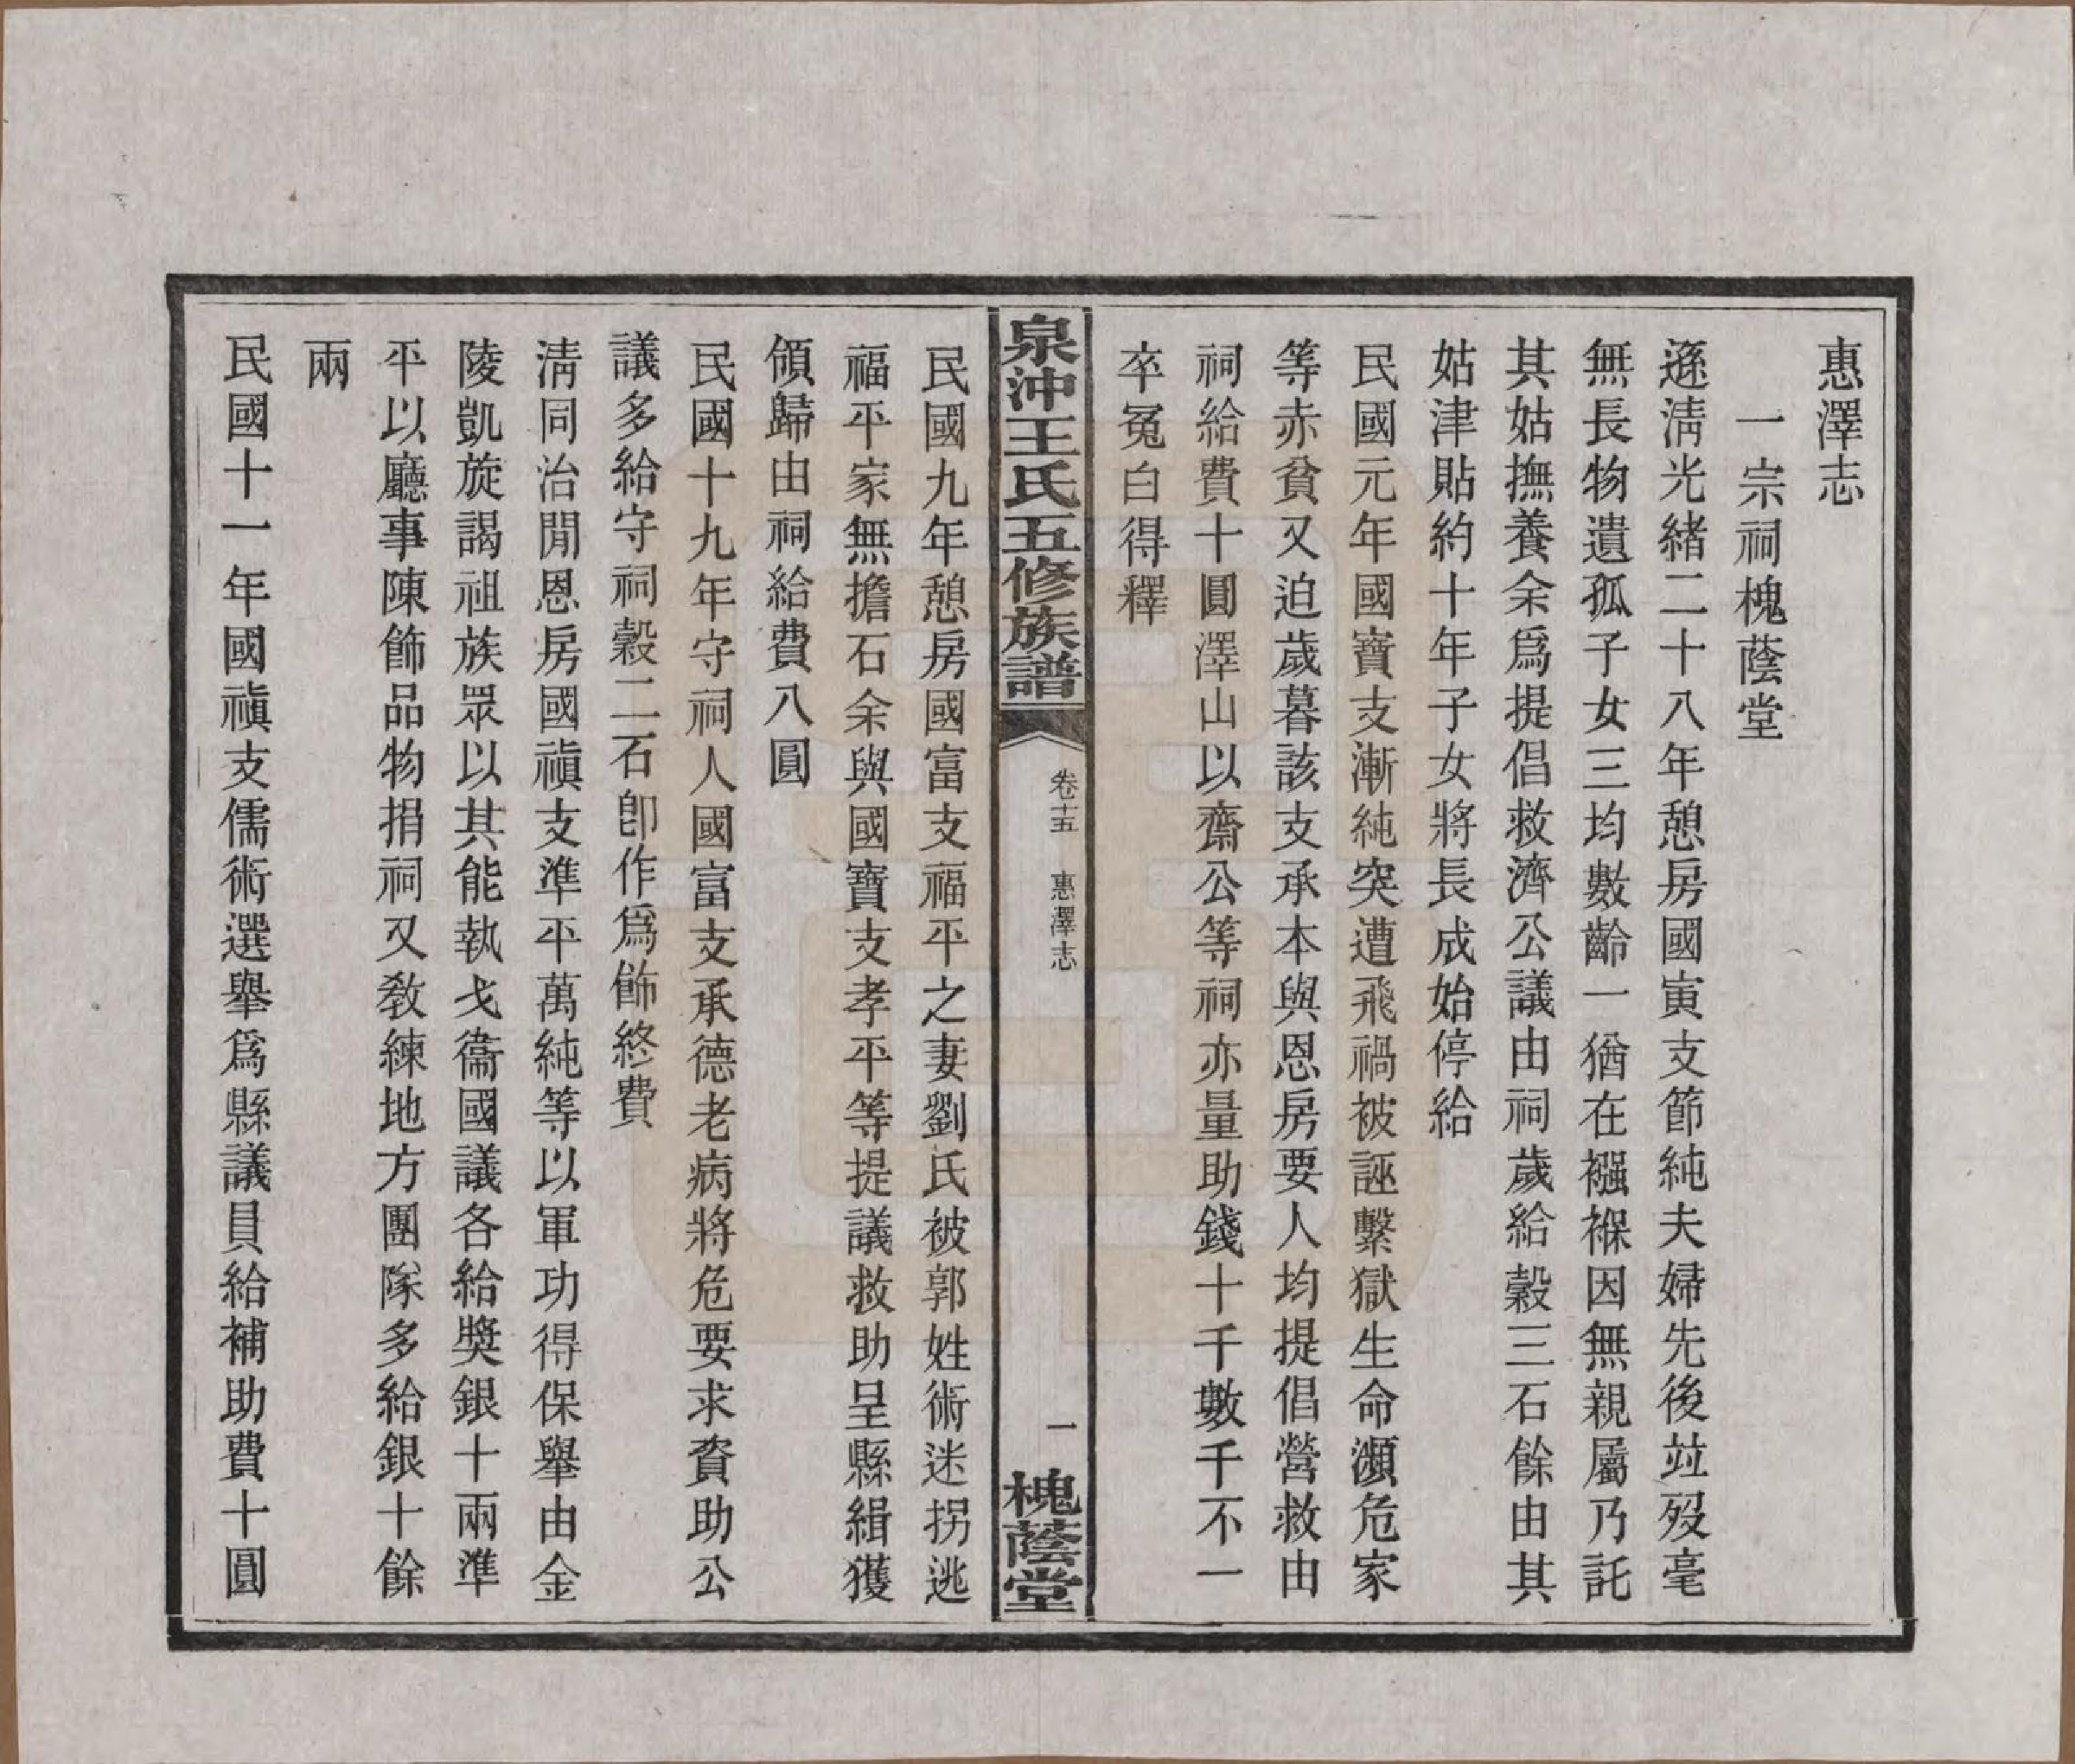 惠澤志
一宗祠槐蔭堂
遜淸光緒二十八年憩房國寅支節純夫婦先後竝歿毫
無長物遺孤子女三均數齡一猶在襁褓因無親屬乃託
其姑撫養余爲提倡救濟公議由祠歲給穀三石餘由其
姑津貼約十年子女將長成始停給
民國元年國寶支漸純突遭飛禍被誣繫獄生命瀕危家
等赤貧又迫歲暮該支承本與恩房要人均提倡營救由
祠給費十圓澤山以齋公等祠亦量助錢十千數千不一
卒冤白得釋
泉沖王氏五修族譜
卷十五
惠澤志
一
槐蔭堂
民國九年憩房國富支福平之妻劉氏被郭姓術迷拐逃
福平家無擔石余與國寶支孝平等提議救助呈縣緝獲
領歸由祠給費八圓
民國十九年守祠人國富支承德老病將危要求資助公
議多給守祠穀二石卽作爲飾終費
淸同治閒恩房國禎支準平萬純等以軍功得保舉由金
陵凱旋謁祖族眾以其能執戈衞國議各給獎銀十兩準
平以廳事陳飾品物捐祠又敎練地方團隊多給銀十餘
兩
民國十一年國禎支儒術選舉爲縣議員給補助費十圓